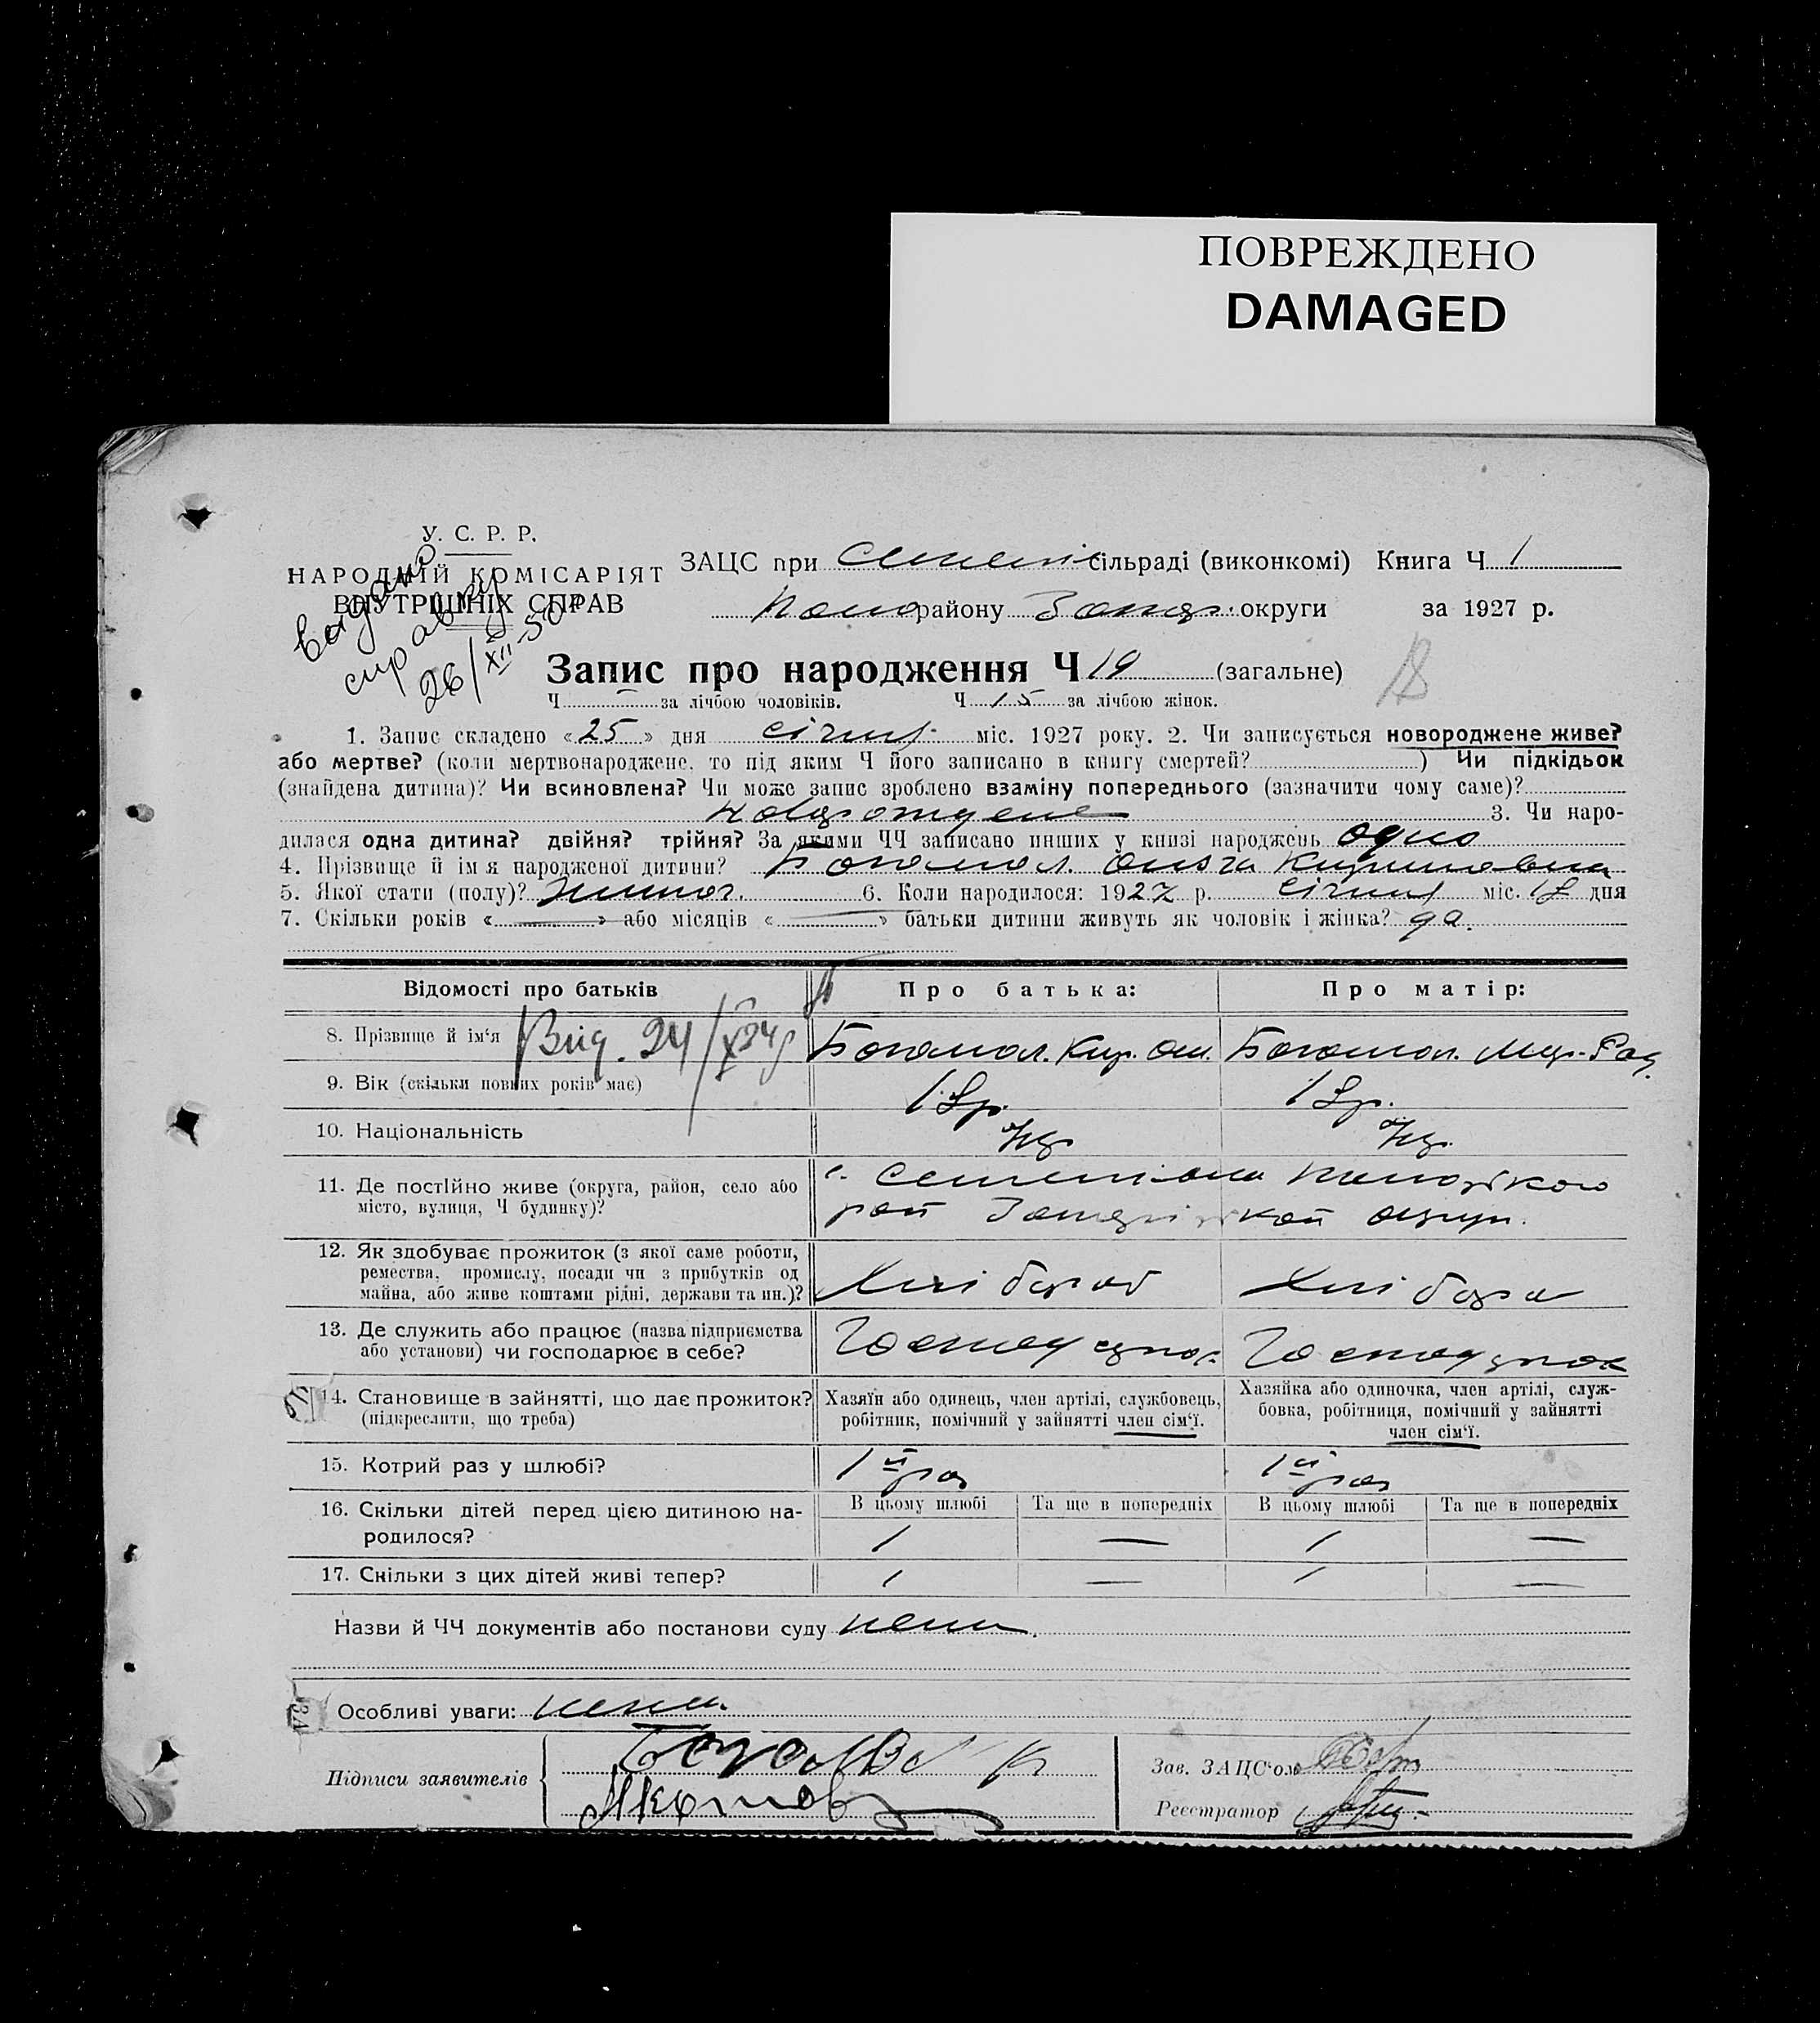 ПОВРЕЖДЕНО
DAMAGED
У. С. Р. Р.
НАРОДНІЙ КОМІСАРІЯТ
ВНУТРІШНІХ СПРАВ
видано
справку
26/XII-50г
ЗАЦС при сільраді (виконкомі) Книга Ч 1
району округи за 1927 р.
Запис про народження Ч 19 (загальне)
18
Ч — за лічбою чоловіків. Ч 15 за лічбою жінок.
1. Запис складено «25» дня січня міс. 1927 року. 2. Чи записується новороджене живе?
або мертве? (коли мертвонароджене, то під яким Ч його записано в книгу смертей? ) Чи підкідьок
(знайдена дитина)? Чи всиновлена? Чи може запис зроблено взаміну попереднього (зазначити чому саме)?
3. Чи наро-
дилася одна дитина? двійня? трійня? За якими ЧЧ записано инших у книзі народжень одно
4. Прізвище й ім я народженої дитини? Богомол. Ольга Кириловна
5. Якої стати (полу)? 6. Коли народилося: 1927 р. січня міс. 18 дня
7. Скільки років « — » або місяців « — » батьки дитини живуть як чоловік і жінка? да.
Відомості про батьків Про батька: Про матір:
8. Прізвище й ім‘я Вид. 24/X 34 Богомол. Кир. Богомол.
9. Вік (скільки повних років має) 18р. 18р.
10. Національність Укр Укр.
11. Де постійно живе (округа, район, село або
місто, вулиця, Ч будинку)?
с.
рай округи.
12. Як здобуває прожиток (з якої саме роботи,
ремества, промислу, посади чи з прибутків од
майна, або живе коштами рідні, держави та ин.)?
Хлібороб
13. Де служить або працює (назва підприємства
або установи) чи господарює в себе?
14. Становище в зайнятті, що дає прожиток?
(підкреслити, що треба)
Хазяїн або одинець, член артілі, службовець,
робітник, помічний у зайнятті член сім‘ї.
Хазяйка або одиночка, член артілі, служ-
бовка, робітниця, помічний у зайнятті
член сім‘ї.
15. Котрий раз у шлюбі? 1й раз 1й раз
16. Скільки дітей перед цією дитиною на-
родилося?
В цьому шлюбі Та ще в попередніх В цьому шлюбі Та ще в попередніх
1 — 1 —
17. Скільки з цих дітей живі тепер? 1 — 1 —
Назви й ЧЧ документів або постанови суду нема.
Особливі уваги: нема.
Підписи заявителів Богомол К
Зав. ЗАЦС‘ом
Реєстратор